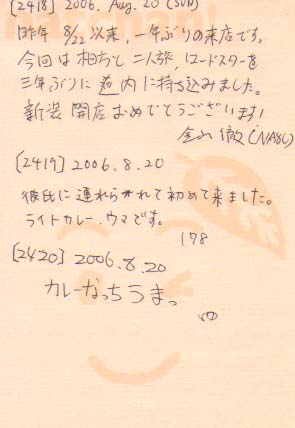 [2418] 2006. Aug. 20 (SUN)
昨年 8/22 以来、一年ぶりの来店です。
今回は相方と二人旅、ロードスターを
三年ぶりに道内に持ち込みました。
新装開店おめでとうございます!
金山 徹 (NA8C)
[2419] 2006.8.20
彼氏に連れられて初めて来ました。
ライトカレー、ウマです。
178
[2420] 2006.8.20
カレーなっちうまっ